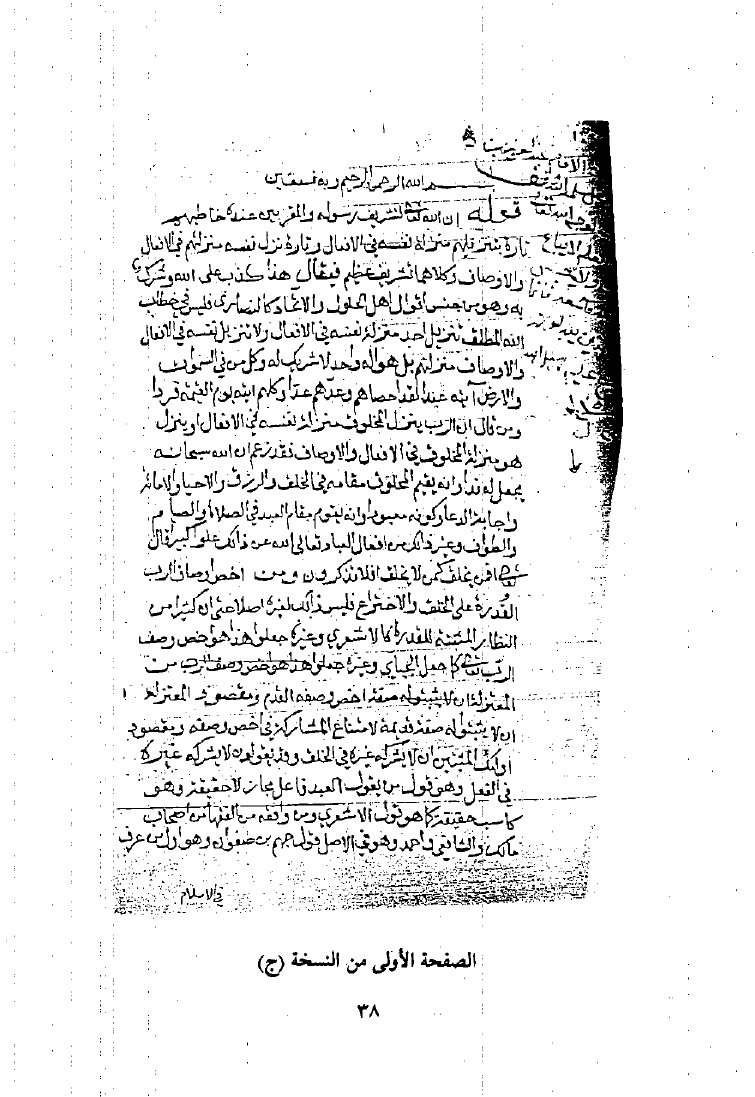 بسم الله الرحمن الرحيم وبه نستعين
قوله ان الله تعالى لتشريف رسوله والمقربين عنده خاطبهم
تارة بتنزيلهم منزلة نفسه في الافعال وتارة نزل نفسه منزلتهم في الافعال
والاوصاف وكلاهما تشريف عظيم فيقال هذا كذب على الله وشرك
به وهو من جنس اقوال اهل الحلول والاتحاد كالنصارى فليس في خطاب
الله المطلق تنزيل احد منزلة نفسه في الافعال ولا تنزيل نفسه في الافعال
والاوصاف منزلتهم بل هو اله واحد لا شريك له وكل من في السموات
والارض آتيه عبدا لقد احصاهم وعدهم عدا وكلهم آتيه يوم القيمة فردا
ومن قال ان الرب ينزل المخلوق منزلة نفسه في الافعال او ينزل
هو منزلة المخلوق في الافعال والاوصاف فقد زعم ان الله سبحانه
يجعل له ندا وانه يقيم المخلوق مقامه في الخلق والرزق والاحيا والاماتة
واجابة الدعا وكونه معبودا وانه يقوم مقام العبد في الصلاة والصيام
والطواف وغير ذلك من افعال العباد تعالى الله عن ذلك علوا كبيرا قال
تعالى افمن يخلق كمن لا يخلق افلا تذكرون ومن اخص اوصاف الرب
القدرة على الخلق والاختراع فليس ذلك لغيره اصلا حتى ان كثيرا من
النظار المثبتة للقدر كالاشعري وغيره جعلوا هذا هو اخص وصف
الرب تعالى كما جعل الجبائي وغيره من
المعتزلة ان لا يثبتوا له صفة اخص وصفه القدم ومقصود المعتزلة
ان لا يثبتوا له صفة قديمة لامتناع المشاركة في اخص وصفه ومقصود
اولئك المثبتين ان لا يشركه غيره في الخلق وقد يقولون لا يشركه غيره
في الفعل وهو قول من يقول العبد فاعل مجازا لا حقيقة وهو
كاسب حقيقة كما هو قول الاشعري ومن وافقه من الفقها من اصحاب
مالك والشافعي واحمد وهو في الاصل قول جهم بن صفوان وهو اول من عرف
في الاسلام
الصفحة الأولى من النسخة (ج)
٣٨